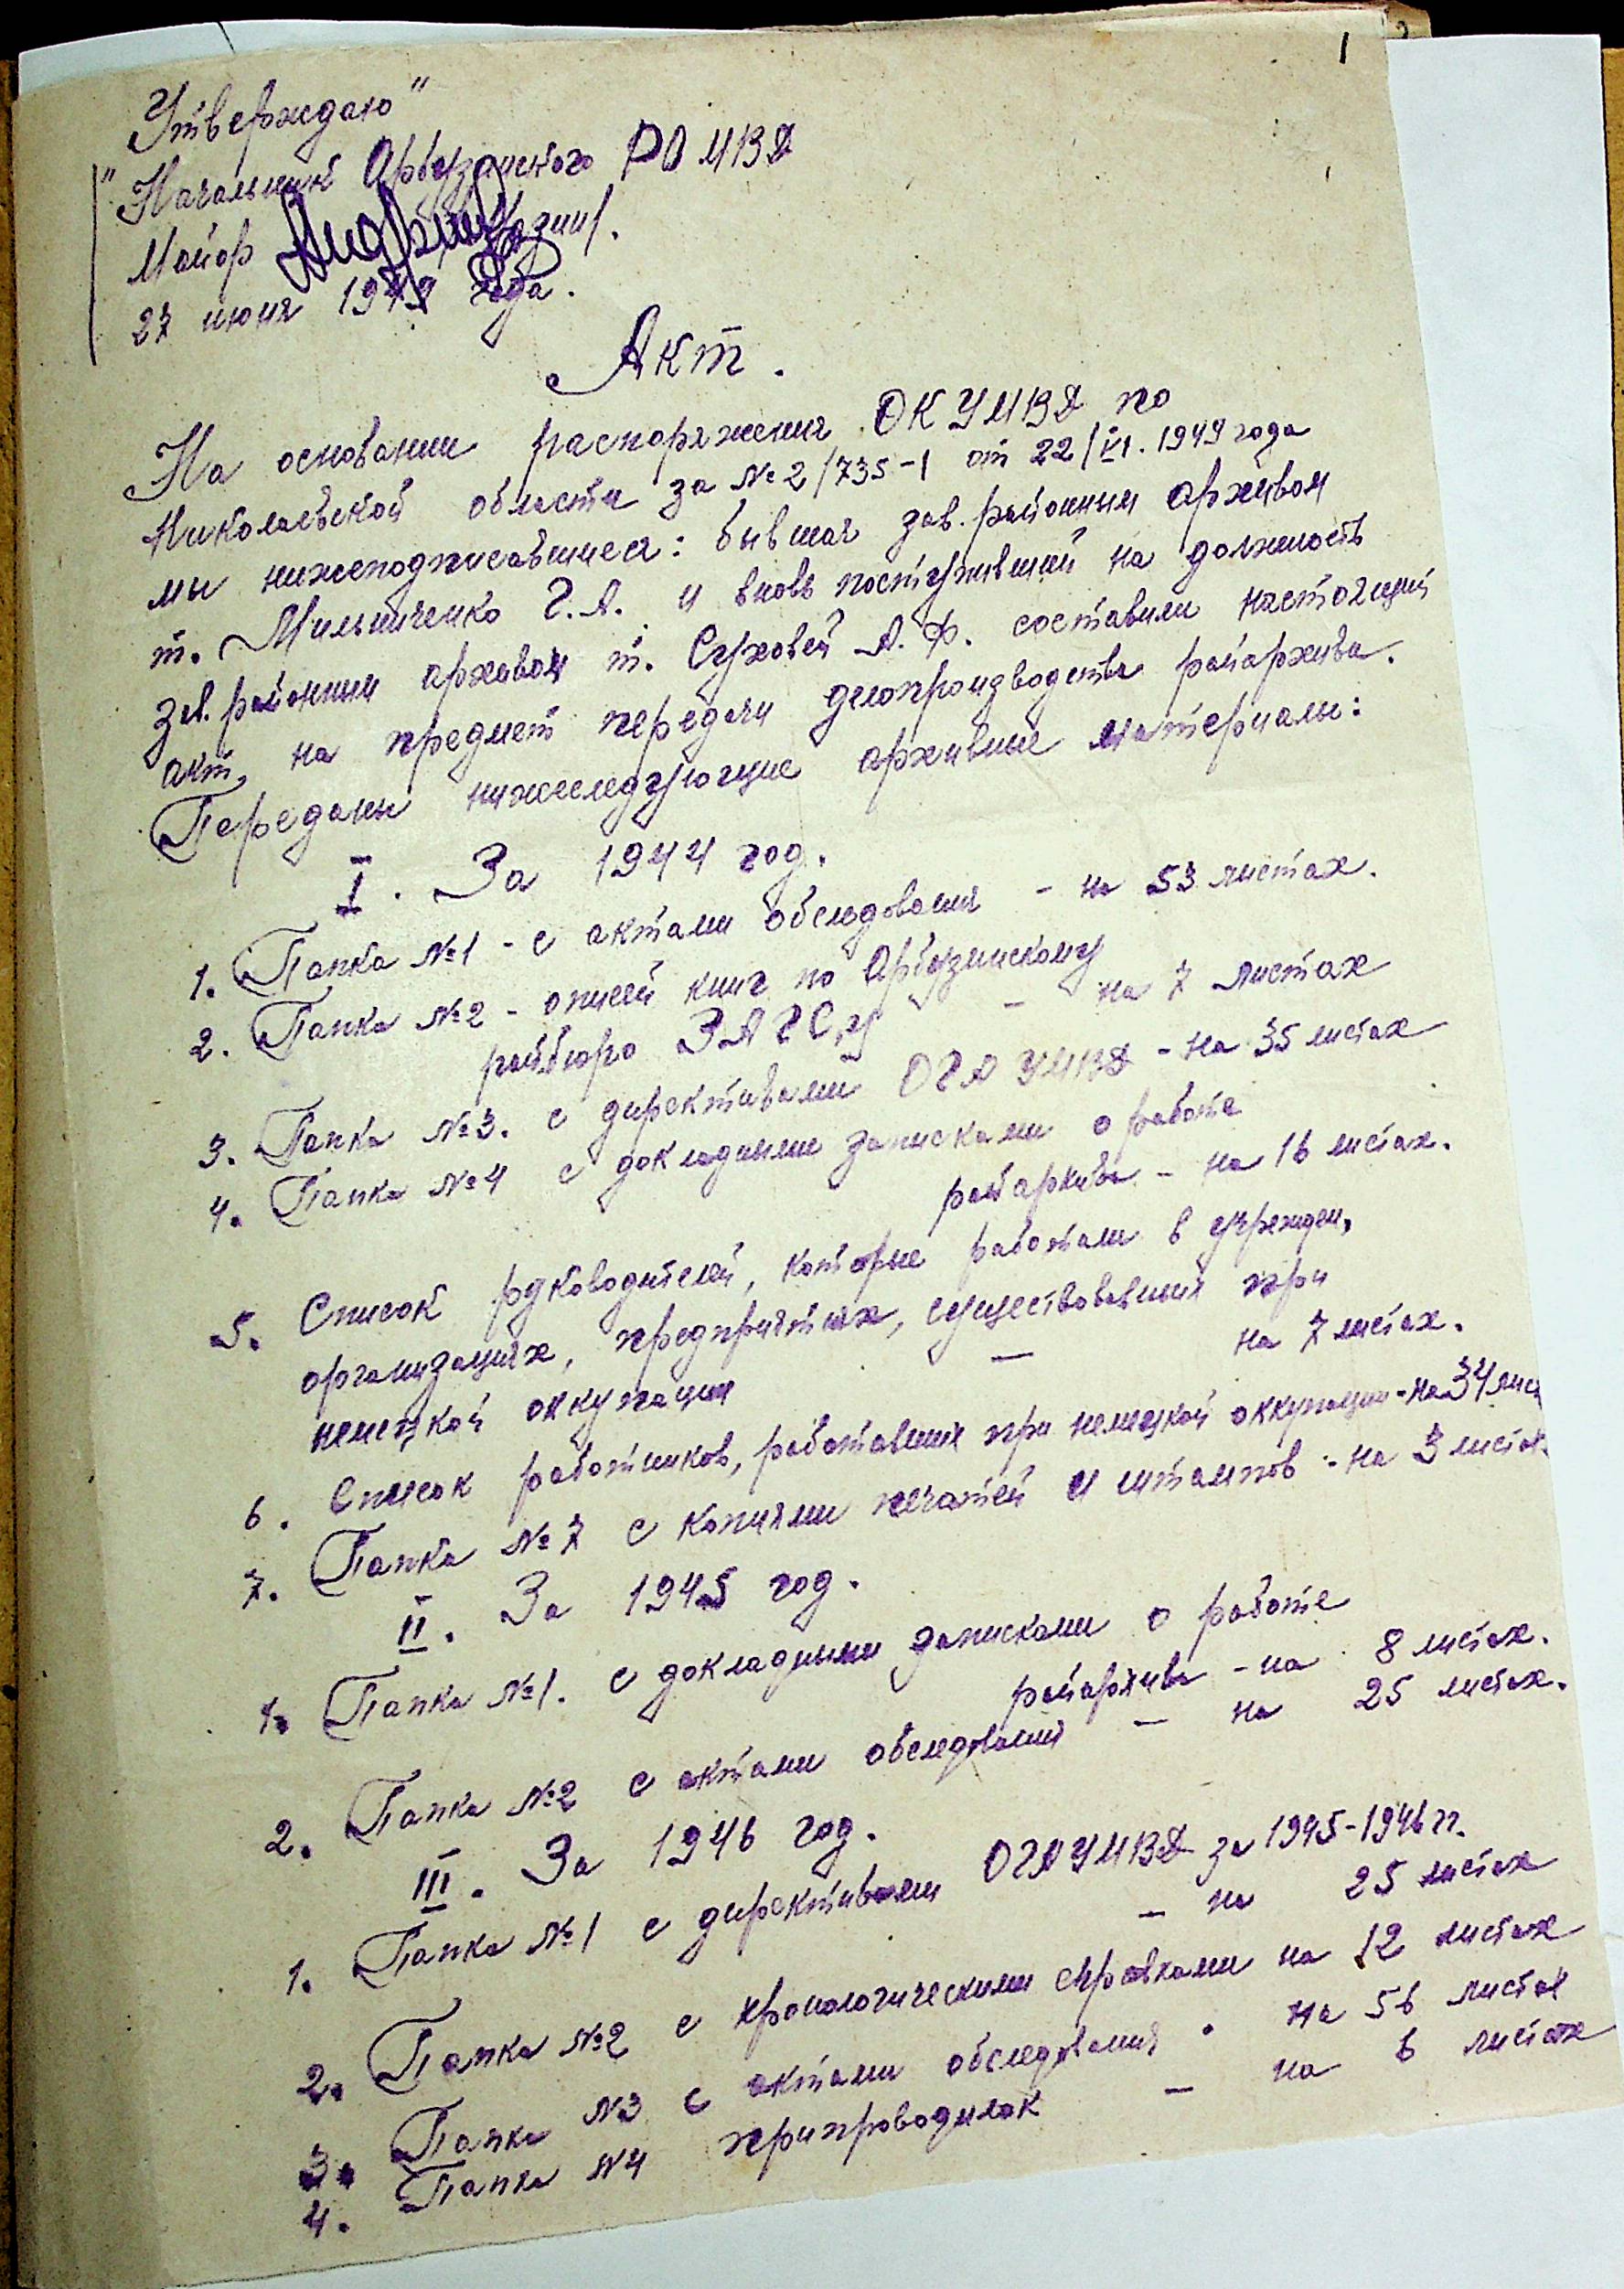 1
Утверждаю"
"Начальник Арбузинского РО МВД
Майор
27 июня 1949 года.
Акт.
На основании распоряжения ОК УМВД по
Николаевской области за № 2/735-1 от 22/VI. 1949 года
мы нижеподписавшиеся: бывшая зав. районным архивом
т. Мильниченко Г.А. и вновь поступивший на должность
зав. районным архивом т. Суховей А.Ф. составили настоящий
акт, на предмет передачи делопроизводства райархива.
Переданы нижеследующие архивные материалы:
I. За 1944 год.
1. Папка №1 - с актами обследования - на 53 листах.
2. Папка №2 - описей книг по Арбузинскому
райбюро ЗАГС,у - на 7 листах
3. Папка №3. с директивами ОГА УМВД - на 35 листах
4. Папка №4 с докладными записками о работе
райархива - на 16 листах.
5. Список руководителей, которые работали в учрежден,
организациях, предприятиях, существовавших при
немецкой оккупации — на 7 листах.
6. Список работников, работавших при немецкой оккупации - на 34 лист
7. Папка №7 с копиями печатей и штампов - на 3 листах
II. За 1945 год.
1. Папка №1. с докладными записками о работе
райархива - на 8 листах.
2. Папка №2 с актами обследований — на 25 листах.
III. За 1946 год.
1. Папка №1 с директивами ОГА УМВД за 1945-1946 гг.
— на 25 листах
2. Папка №2 с хронологическими справками на 12 листах
3. Папка №3 с актами обследования . на 56 листах
4. Папка №4 припроводилок — на 6 листах